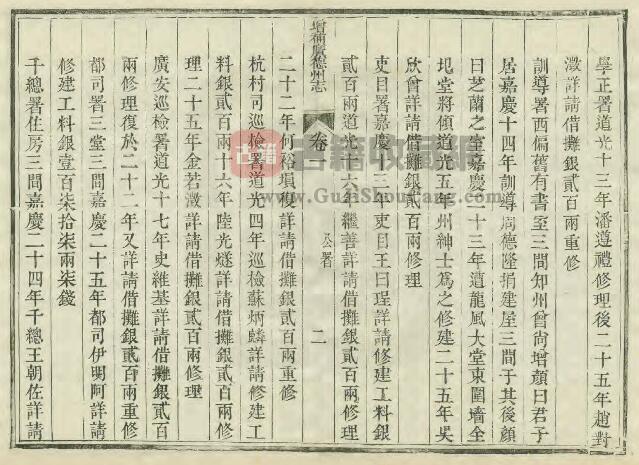 學正署道光十三年潘遵禮修理後二十五年趙對
澂詳請借攤銀貳百兩重修
訓導署西偏舊有書室三間知州曾尚增顏曰君子
居嘉慶十四年訓導周德隆捐建屋三間于其後顏
曰芝蘭之室嘉慶二十三年遭龍風大堂東圍墻全
圮堂將傾道光五年州紳士爲之修建二十五年吳
欣曾詳請借攤銀貳百兩修理
吏目署嘉慶十三年吏目王曰珵詳請修建工料銀
貳百兩道光十六年繼善詳請借攤銀貳百兩修理
增補廣德州志
卷
公署
二
二十二年何裕塤復詳請借攤銀貳百兩重修
杭村司巡檢署道光四年巡檢蘇炳麟詳請修建工
料銀貳百兩十六年陸光燧詳請借攤銀貳百兩修
理二十五年金若澂詳請借攤銀貳百兩修理
廣安巡檢署道光十七年史維基詳請借攤銀貳百
兩修理復於二十二年又詳請借攤銀貳百兩重修
都司署三堂三間嘉慶二十五年都司伊明阿詳請
修建工料銀壹百柒拾柒兩柒錢
千總署住房三間嘉慶二十四年千總王朝佐詳請
古籍
古籍收藏網
www.GujiShoucang.com